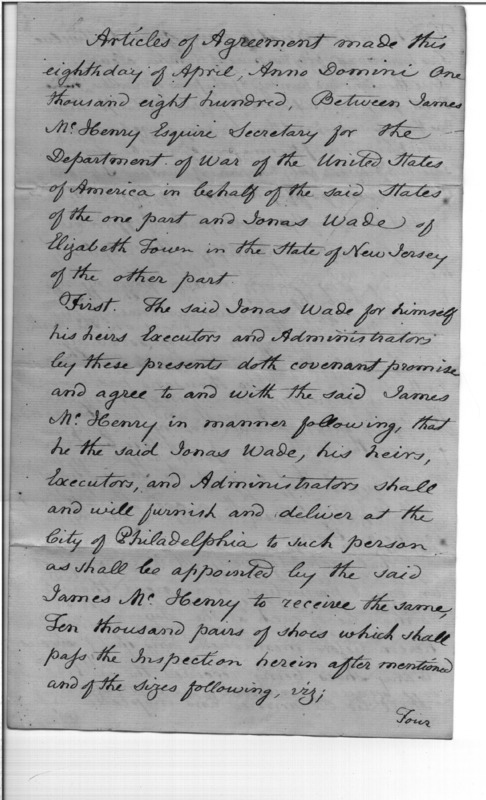 Articles of Agreement made this
eighth day of April, Anno Domini One
thousand eight hundred, Between James
Mc. Henry Esquire Secretary for the
Department of War of the United States
of America in behalf of the said States
of the one part and Jonas Wade of
Elizabeth Town in the State of New Jersey
of the other part.
First. The said Jonas Wade for himself
his heirs Executors and Administrators
by these presents doth covenant promise
and agree to and with the said James
Mc. Henry in manner following, that
he the said Jonas Wade, his heirs,
Executors, and Administrators shall
and will furnish and deliver at the
City of Philadelphia to such person
as shall be appointed by the said
James Mc. Henry to receive the same,
Ten thousand pairs of shoes which shall
pass the Inspection herein after mentioned
and of the sizes following, viz;
Four